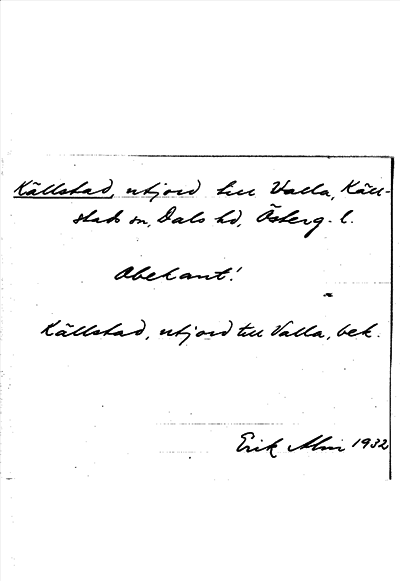 Källstad, utjord till Valla, Käll-
stads sn, Dals hd, Österg. l.
Obekant!
Källstad, utjord till Valla, bek.
Erik Alm 1932